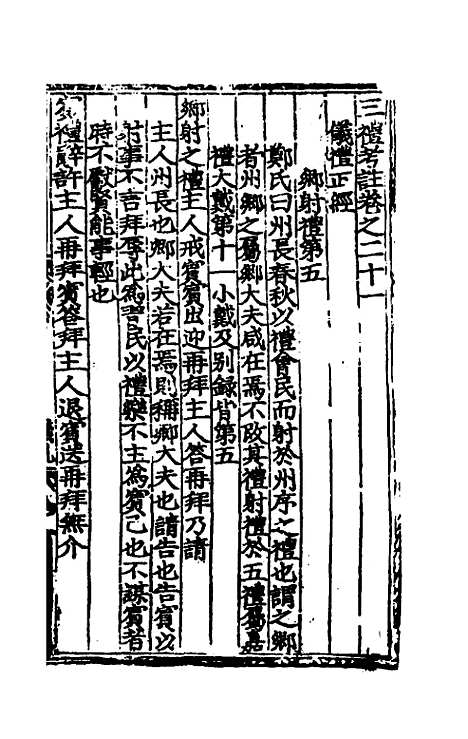 三禮考註卷之二十一
儀禮正經
鄉射禮第五
鄭氏曰州長春秋以禮會民而射於州序之禮也謂之鄉
者州鄉之屬鄉大夫咸在焉不改其禮射禮於五禮屬嘉
禮大戴第十一小戴及別録皆第五
鄉射之禮主人戒賓賓出迎再拜主人答再拜乃請
主人州長也鄉大夫若在焉則稱鄉大夫也請告也告賓以
射事不言拜辱此為習民以禮樂不主為賓己也不謀賓者
時不獻賢能事輕也
賓禮辭許主人再拜賓答拜主人退賓送再拜無介